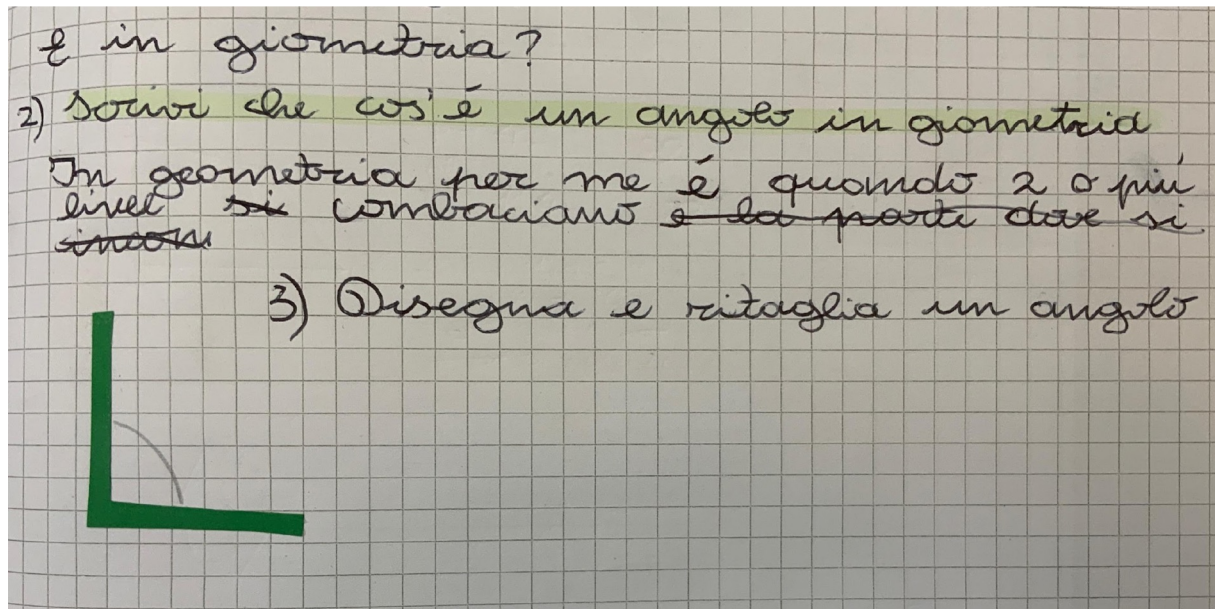 E in giometria?
2) Scrivi che cos'é un angolo in giometria
In geometria per me é quando 2 o più
linee si combaciano e la parti dove si
3) Disegna e ritaglia un angolo